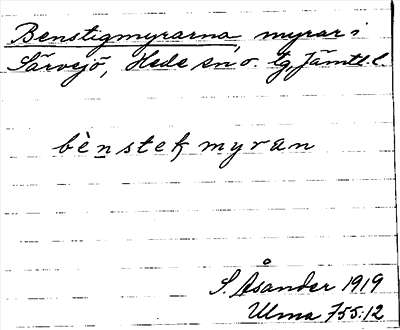 Benstigmyrarna, myrar i
Särvsjö, Hede sn o. tg, Jämtl. l.
bènstekmyran
S. Åsander 1919
Ulma 755:12